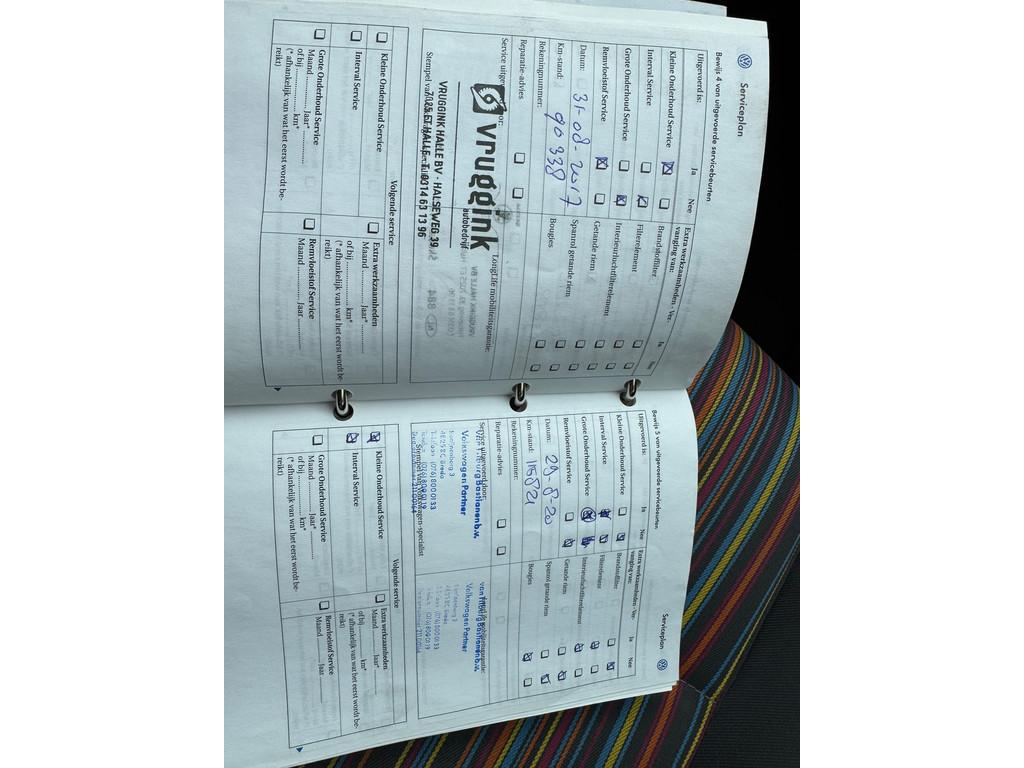 Serviceplan
Bewijs 4 van uitgevoerde servicebeurten
Uitgevoerd is: Ja Nee
Kleine Onderhoud Service
Interval Service
Grote Onderhoud Service
Remvloeistof Service
Datum: 31-08-2017
Km-stand: 90338
Rekeningnummer:
Reparatie-advies
Extra werkzaamheden - Ver-
vanging van: Ja Nee
Brandstoffilter
Filterelement
Interieurluchtfilterelement
Getande riem
Spanrol getande riem
Bougies
Service uitgevoerd door:
LongLife mobiliteitsgarantie:
vruggink
autobedrijf
VRUGGINK HALLE BV - HALSEWEG 39
7025 ET HALLE - T. 0314 63 13 96
Stempel van
Volgende service
Kleine Onderhoud Service
Interval Service
Grote Onderhoud Service
Maand .......... Jaar* ..........
of bij .......... km*
(* afhankelijk van wat het eerst wordt be-
reikt)
Extra werkzaamheden
Maand .......... Jaar* ..........
of bij .......... km*
(* afhankelijk van wat het eerst wordt be-
reikt)
Remvloeistof Service
Maand .......... Jaar ..........
Serviceplan
Bewijs 5 van uitgevoerde servicebeurten
Uitgevoerd is: Ja Nee
Kleine Onderhoud Service
Interval Service
Grote Onderhoud Service
Remvloeistof Service
Datum: 29-8-20
Km-stand: 115821
Rekeningnummer:
Reparatie-advies
Extra werkzaamheden - Ver-
vanging van: Ja Nee
Brandstoffilter
Filterelement
Interieurluchtfilterelement
Getande riem
Spanrol getande riem
Bougies
Service uitgevoerd door:
Volkswagen Partner
(076) 800 01 33
Stempel van Volkswagen-specialist
Volkswagen Partner
Volgende service
Kleine Onderhoud Service
Interval Service
Grote Onderhoud Service
Maand .......... Jaar* ..........
of bij .......... km*
(* afhankelijk van wat het eerst wordt be-
reikt)
Extra werkzaamheden
Maand .......... Jaar* ..........
of bij .......... km*
(* afhankelijk van wat het eerst wordt be-
reikt)
Remvloeistof Service
Maand .......... Jaar ..........